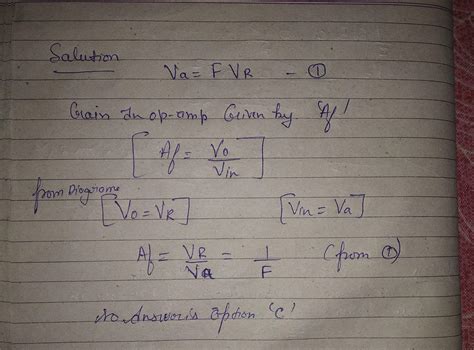 Salution
Va = F VR - ①
Gain In op-amp Given by 'Af'
[Af = Vo/Vin]
from Diagrame
[Vo = VR] [Vin = Va]
Af = VR/Va = 1/F (from ①)
so Answer is Option 'C'